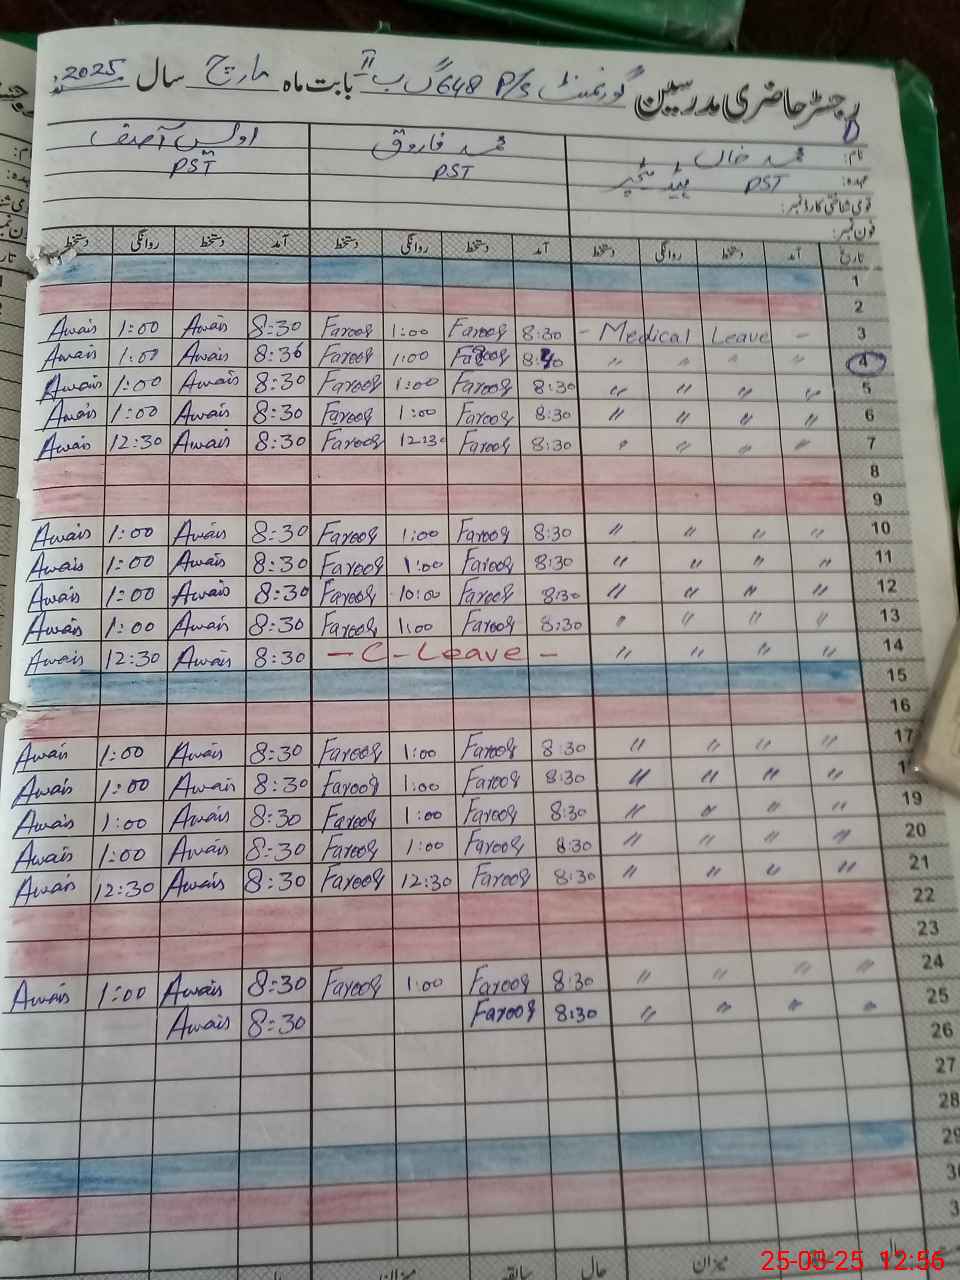 رجسٹر حاضری مدرسین گورنمنٹ P/S 648 گ ب بابت ماہ مارچ سال 2025
نام: محمد خان محمد فاروق اویس آصف
عہدہ: PST ہیڈ ٹیچر PST PST
قومی شناختی کارڈ نمبر:
فون نمبر:
تاریخ آمد دستخط روانگی دستخط آمد دستخط روانگی دستخط آمد دستخط روانگی دستخط
1
2
Awais 1:00 Awais 8:30 Farooq 1:00 Farooq 8:30 - Medical Leave - 3
Awais 1:00 Awais 8:30 Farooq 1:00 Farooq " " " " 4
Awais 1:00 Awais 8:30 Farooq 1:00 Farooq 8:30 " " " " 5
Awais 1:00 Awais 8:30 Farooq 1:00 Farooq 8:30 " " " " 6
Awais 12:30 Awais 8:30 Farooq 12:30 Farooq 8:30 " " " " 7
8
9
Awais 1:00 Awais 8:30 Farooq 1:00 Farooq 8:30 " " " " 10
Awais 1:00 Awais 8:30 Farooq 1:00 Farooq 8:30 " " " " 11
Awais 1:00 Awais 8:30 Farooq 10:00 Farooq 8:30 " " " " 12
Awais 1:00 Awais 8:30 Farooq 1:00 Farooq 8:30 " " " " 13
Awais 12:30 Awais 8:30 - C - Leave - " " " " 14
15
16
Awais 1:00 Awais 8:30 Farooq 1:00 Farooq 8:30 " " " " 17
Awais 1:00 Awais 8:30 Farooq 1:00 Farooq 8:30 " " " " 1
Awais 1:00 Awais 8:30 Farooq 1:00 Farooq 8:30 " " " " 19
Awais 1:00 Awais 8:30 Farooq 1:00 Farooq 8:30 " " " " 20
Awais 12:30 Awais 8:30 Farooq 12:30 Farooq 8:30 " " " " 21
22
23
Awais 1:00 Awais 8:30 Farooq 1:00 Farooq 8:30 " " " " 24
Awais 8:30 Farooq 8:30 " " " " 25
26
27
28
29
30
3
میزان حال سابقہ میزان حال
25-03-25 12:56